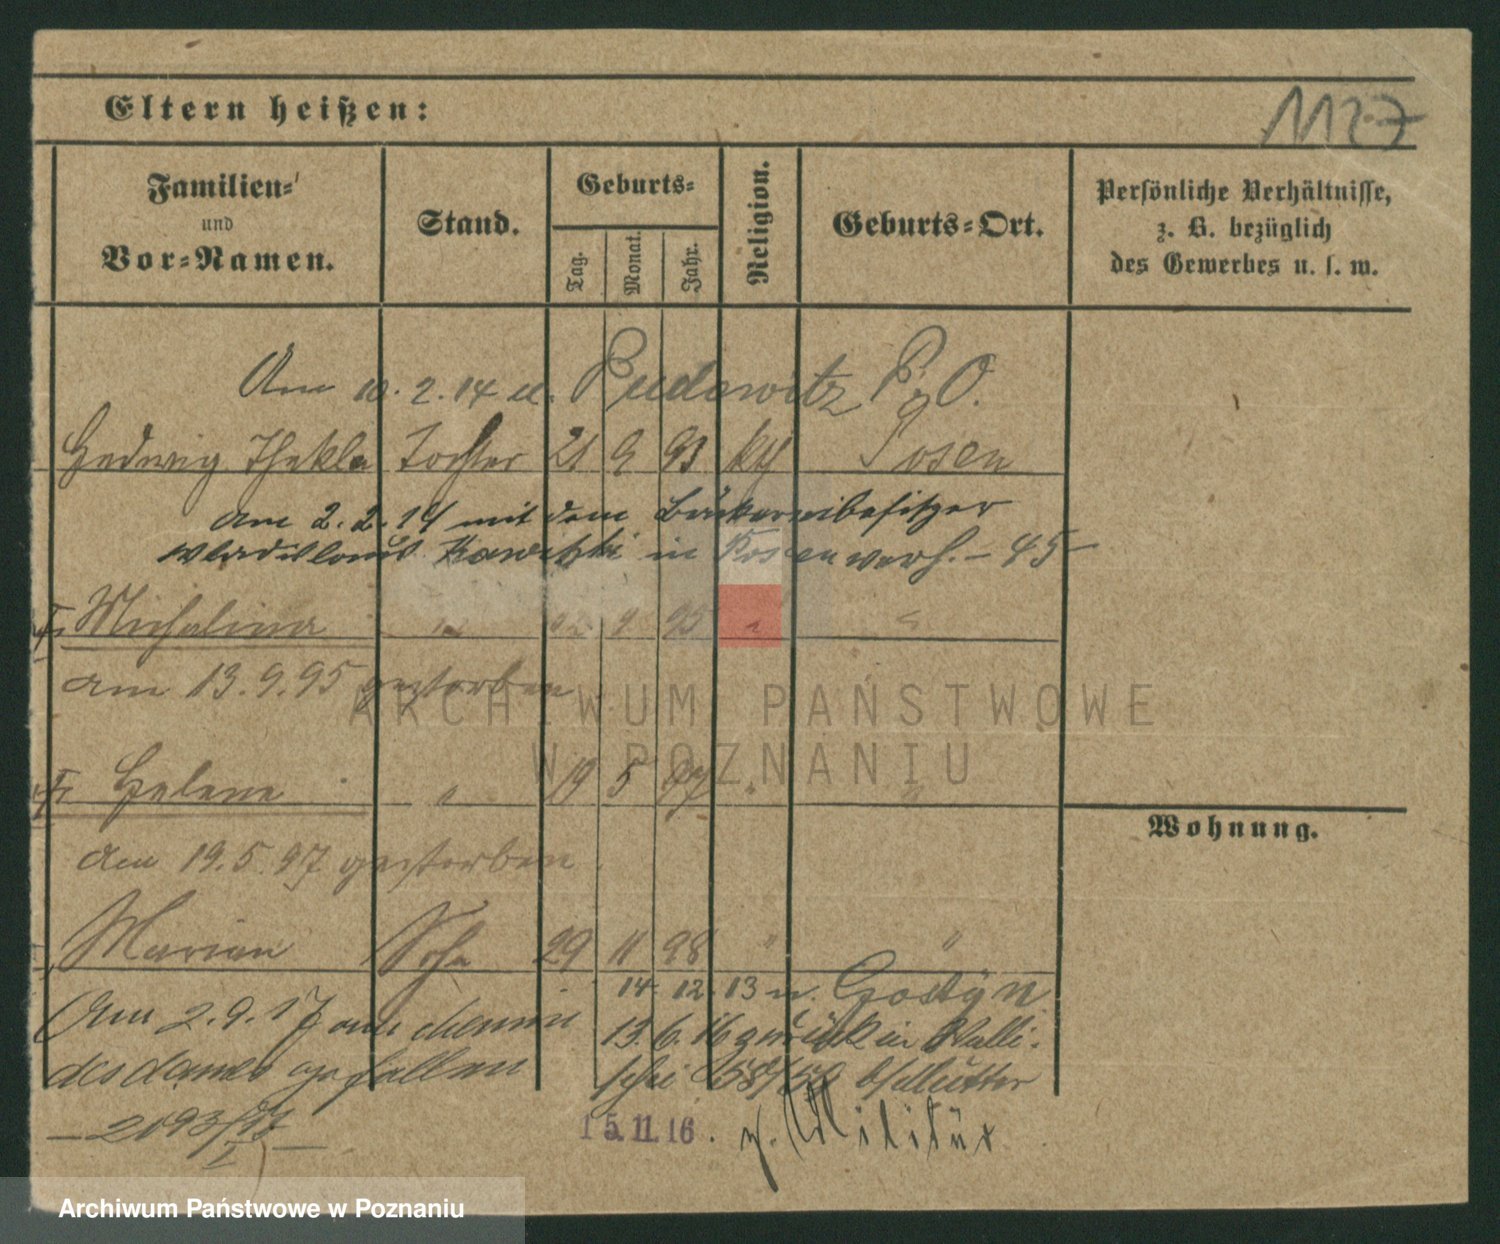 1127
Eltern heißen:
Familien-
und
Vor-Namen.
Stand.
Geburts-
Tag.
Monat.
Jahr.
Religion.
Geburts-Ort.
Persönliche Verhältnisse,
z. B. bezüglich
des Gewerbes u. s. w.
Am 10.2.14 n. Pudewitz P. O.
Hedwig Thekla Tochter 21 9 93 kth Posen
am 2.2.14 mit dem Bäckereibesitzer
Wladislaus Kawetzki in Posen verh. – 45 –
Michalina " 9 95 " "
am 13.9.95 gestorben
Helene " 19 5 97 " "
Wohnung.
am 19.5.97 gestorben
Marian Sohn 29 11 98 " "
14. 12. 13 n. Gostyn
Am 2.9.17 am Chemin
13.6.16 zurück in Walli-
des dames gefallen
schei 58/59 b/Mutter
– 2093/17 –
I
15.11.16. z. Militär
ARCHIWUM PAŃSTWOWE
W POZNANIU
Archiwum Państwowe w Poznaniu